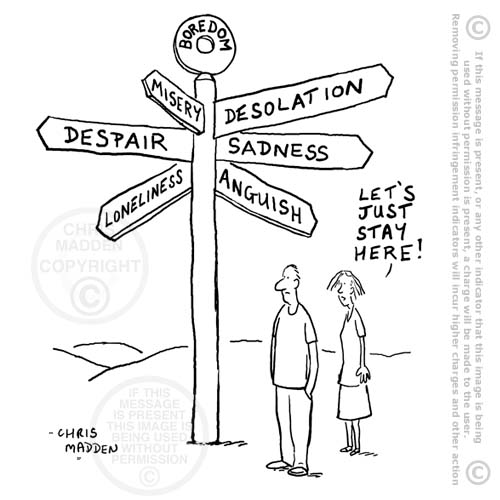 BOREDOM
MISERY
DESOLATION
DESPAIR
SADNESS
LONELINESS
ANGUISH
LET'S
JUST
STAY
HERE!
CHRIS
MADDEN
COPYRIGHT
©
IF THIS
MESSAGE
IS PRESENT
THIS IMAGE IS
BEING USED
WITHOUT
PERMISSION
©
- CHRIS
MADDEN
"
©
If this message is present, or any other indicator that this image is being
used without permission is present, a charge will be made to the user.
Removing permission infringement indicators will incur higher charges and other action
©